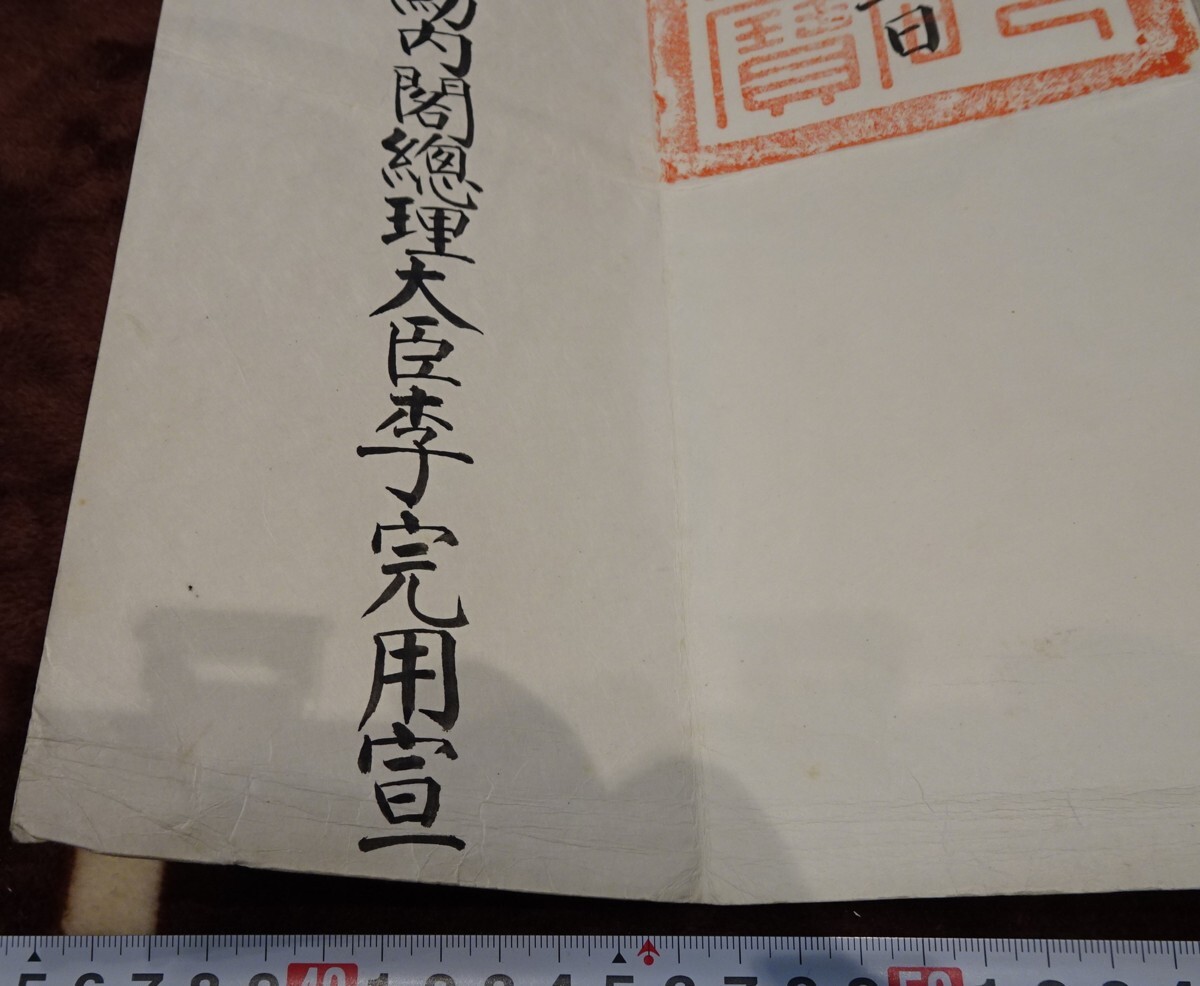 日
寶
內閣總理大臣李完用宣
5 6 7 8 9 40 1 2 3 4 5 6 7 8 9 50 1 2 3 4